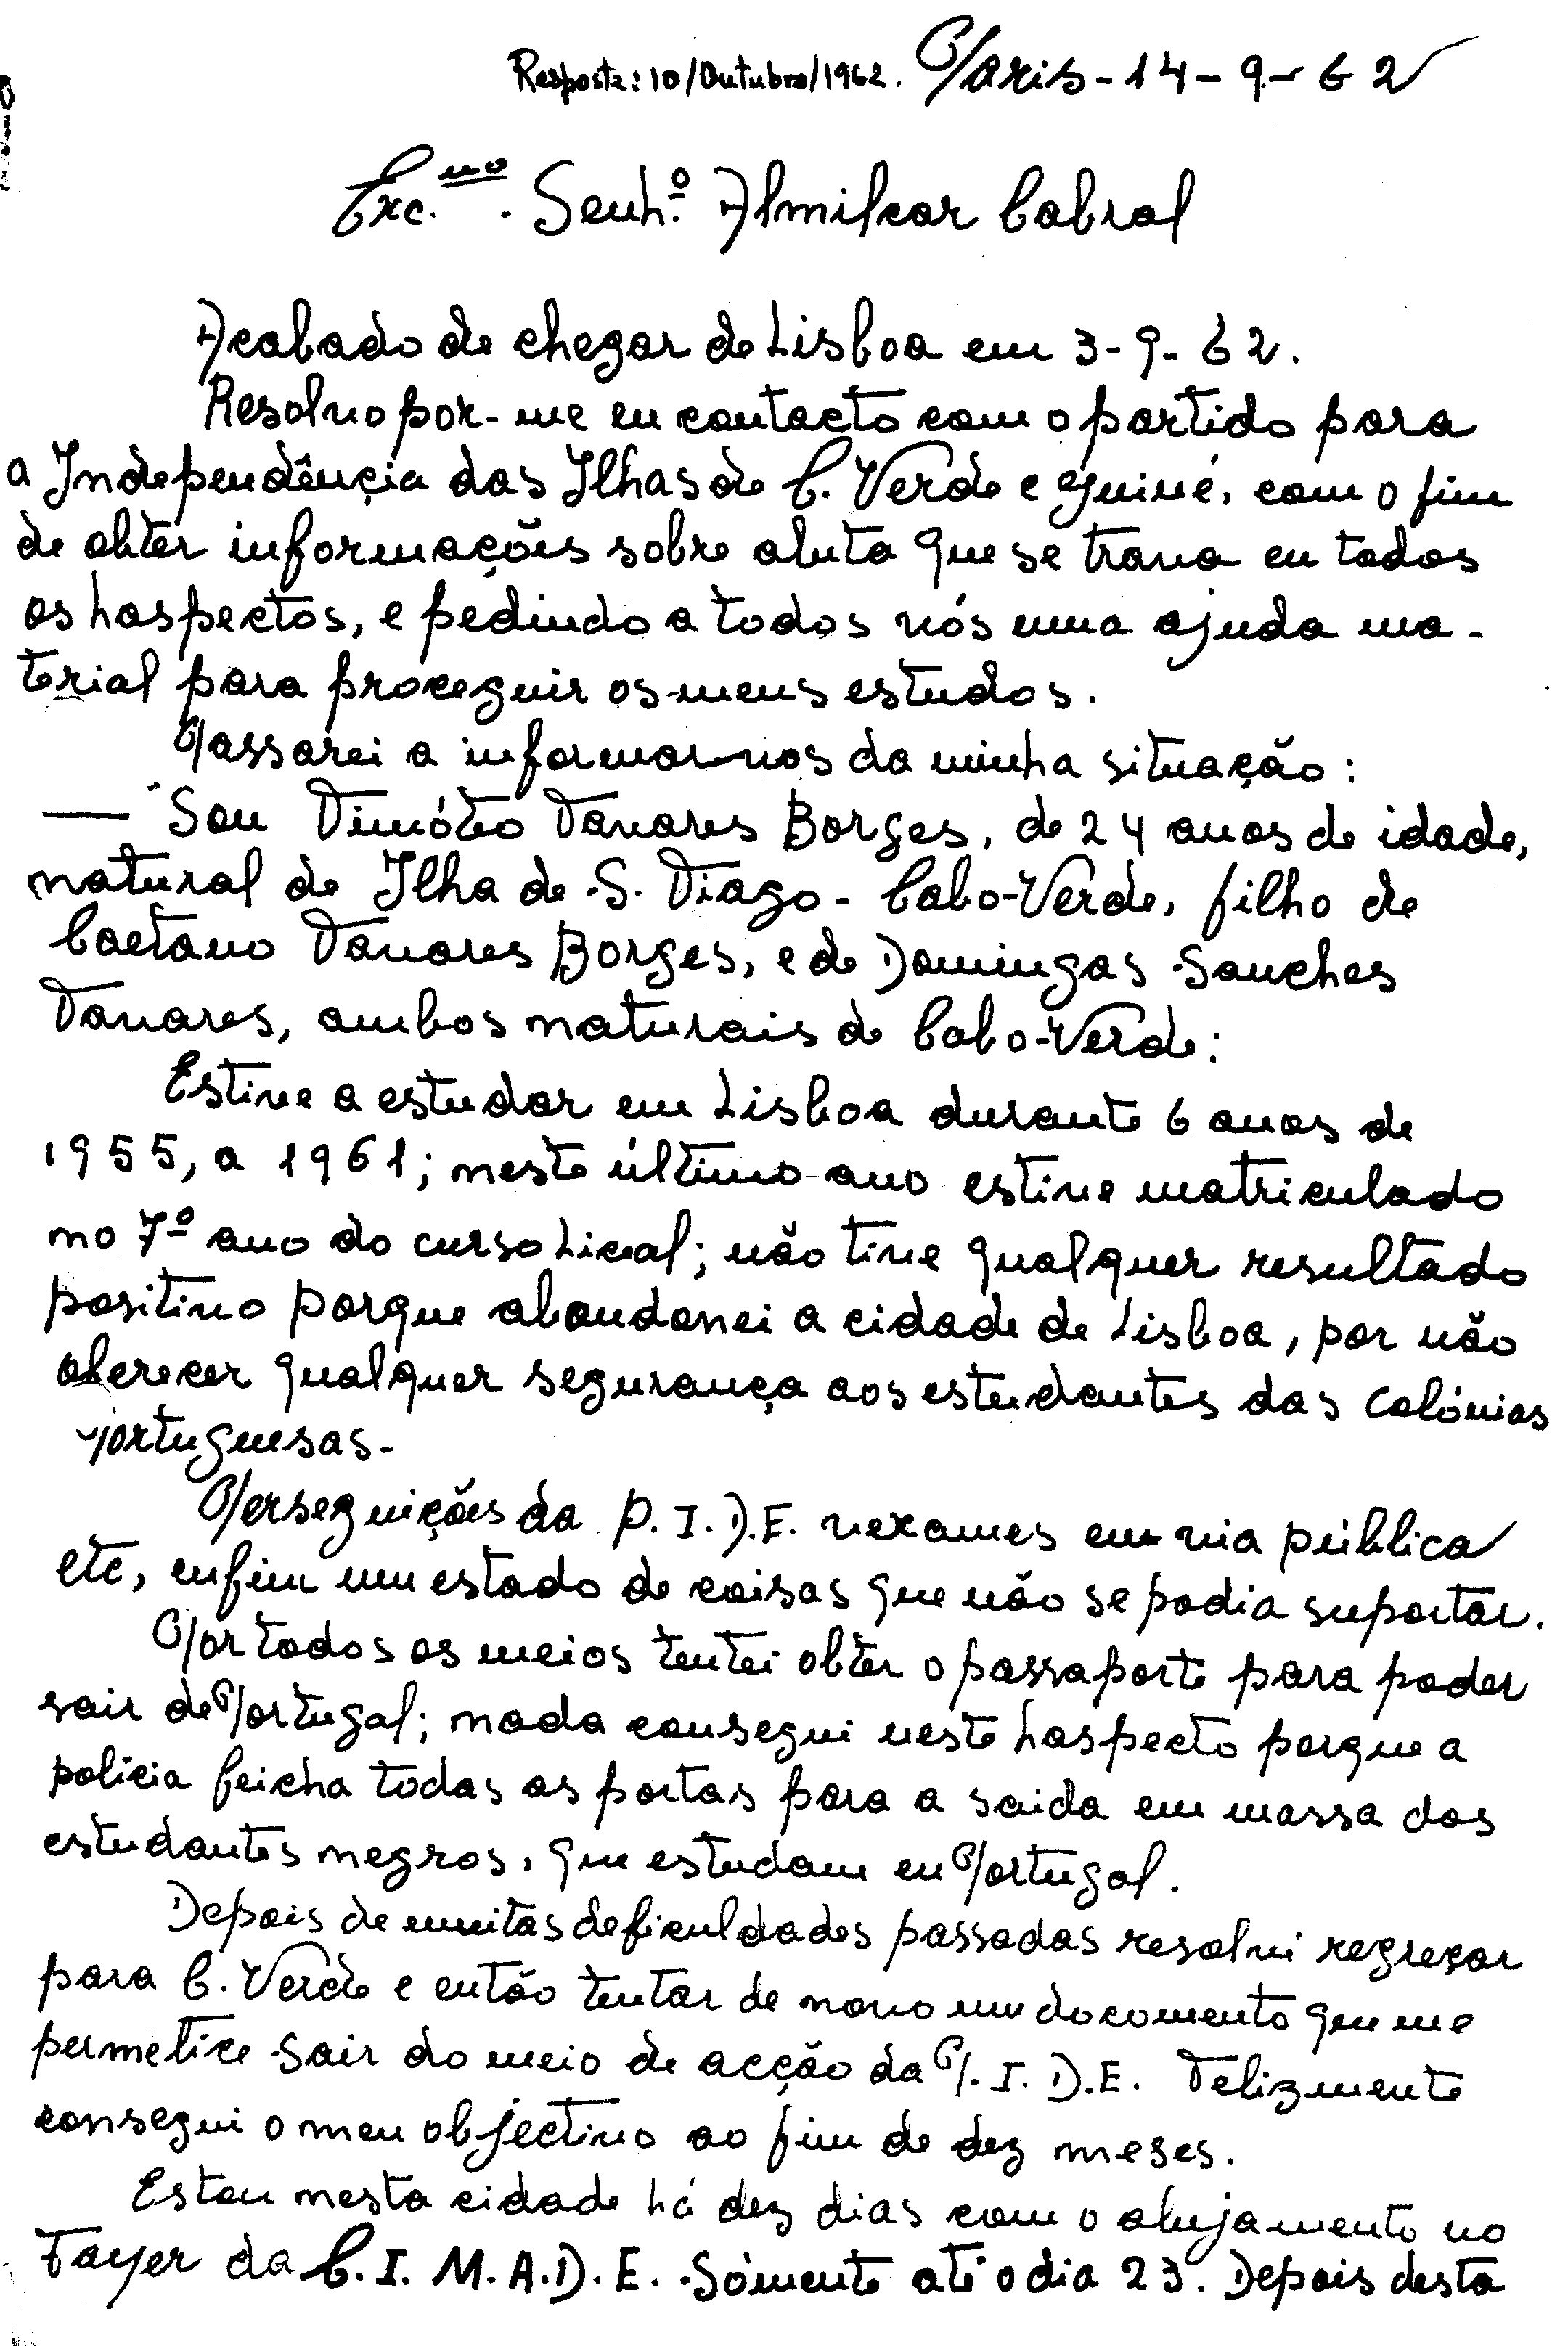 Resposta: 10/Outubro/1962. Paris - 14 - 9 - 62
Exc.mo. Senh.º Almilcar Cabral
Acabado de chegar de Lisboa em 3-9-62.
Resolvo por-me en contacto com o partido para
a Independênçia das Ilhas de C. Verde e Guiné, com o fim
de obter informações sobre aluta que se trava en todos
os haspectos, e pedindo a todos vós uma ajuda ma-
terial para proceguir os meus estudos.
Passarei a informar-vos da minha situação:
— Sou Timóteo Tavares Borges, de 24 anos de idade,
natural de Ilha de S. Tiago - Cabo-Verde, filho de
Caetano Tavares Borges, e de Domingas Sanches
Tavares, ambos naturais de Cabo-Verde:
Estive a estudar em Lisboa durante 6 anos de
1955, a 1961; neste último ano estive matriculado
no 7º ano do curso Liceal; não tive qualquer resultado
positivo porque abandonei a cidade de Lisboa, por não
oferecer qualquer segurança aos estudantes das colónias
portuguesas-
Perseguições da P.I.D.E. vexames em via pública
etc, enfim um estado de coisas que não se podia suportar.
Por todos os meios tentei obter o passaporte para poder
sair de Portugal; nada consegui neste haspecto porque a
policia feicha todas as portas para a saida em massa dos
estudantes negros, que estudam en Portugal.
Depois de muitas deficuldades passadas resolvi regreçar
para C. Verde e então tentar de novo um documento que me
permetice sair do meio de acção da P.I.D.E. Felizmente
consegui o meu objectivo ao fim de dez meses.
Estou nesta cidade há dez dias com o alujamento no
Foyer da C.I.M.A.D.E. Sómente até o dia 23. Depois desta